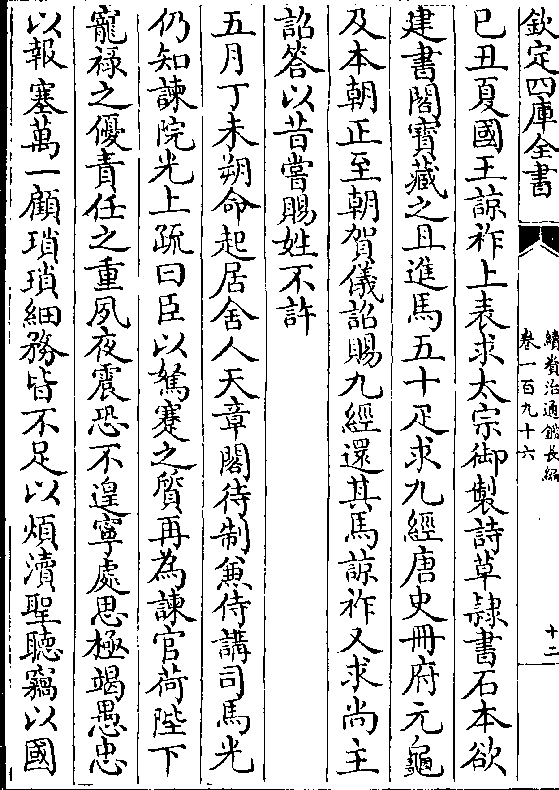 欽定四庫全書
續資治通鑑長編
卷一百九十六
十二
已丑夏國王諒祚上表求太宗御製詩草隷書石本欲
建書閣寶藏之且進馬五十疋求九經唐史冊府元龜
及本朝正至朝賀儀詔賜九經還其馬諒祚又求尚主
詔答以昔嘗賜姓不許
五月丁未朔命起居舍人天章閣待制兼侍講司馬光
仍知諫院光上疏曰臣以駑蹇之質再為諫官荷陛下
寵禄之優責任之重夙夜震恐不遑寧處思極竭愚忠
以報塞萬一顧瑣瑣細務皆不足以煩瀆聖聽竊以國